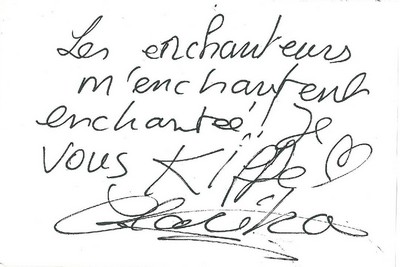 Les enchanteurs
m'enchantent
enchantée! Je
vous Kiffe ♡